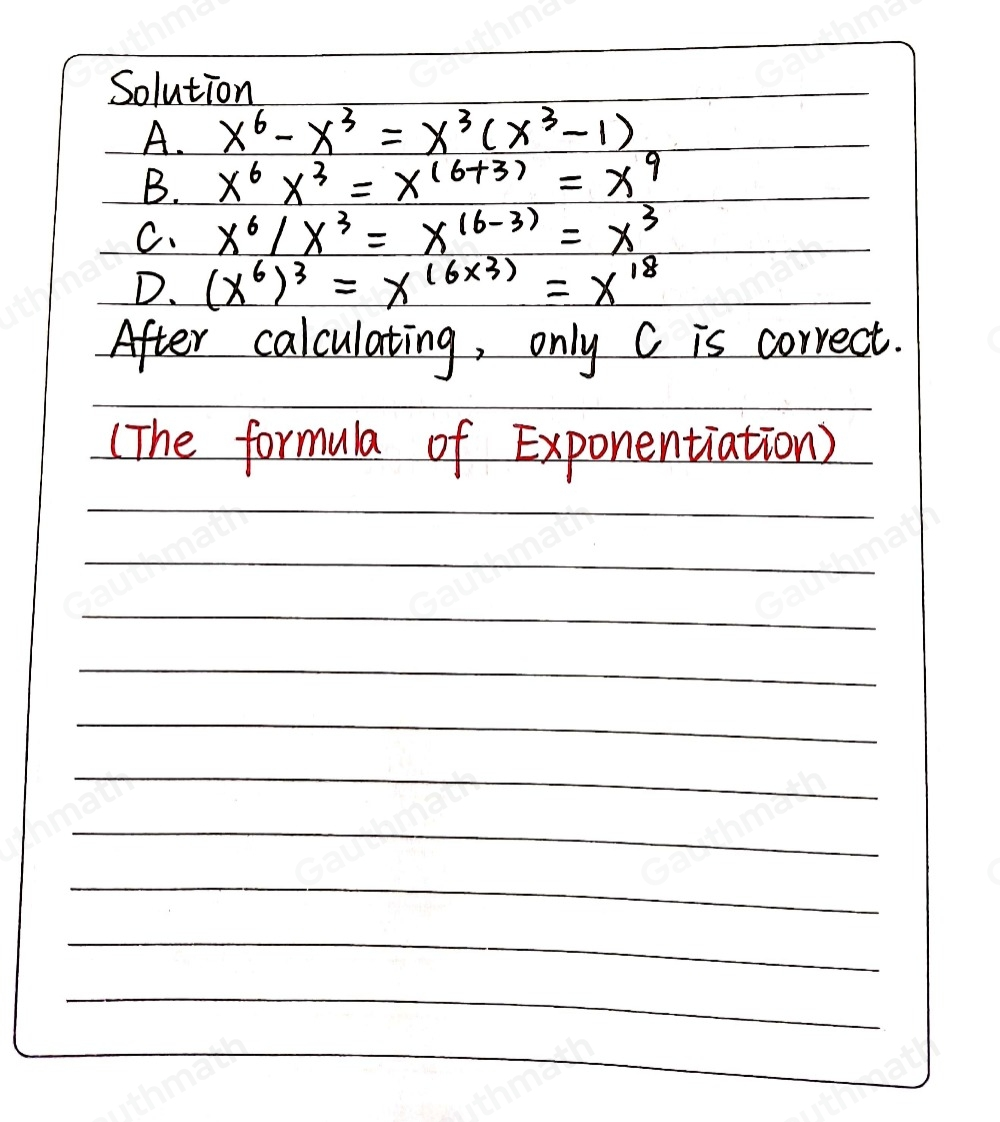 Solution
A. x⁶ - x³ = x³(x³ - 1)
B. x⁶ x³ = x⁽⁶⁺³⁾ = x⁹
C. x⁶ / x³ = x⁽⁶⁻³⁾ = x³
D. (x⁶)³ = x⁽⁶ˣ³⁾ = x¹⁸
After calculating, only C is correct.
(The formula of Exponentiation)
Gauthmath